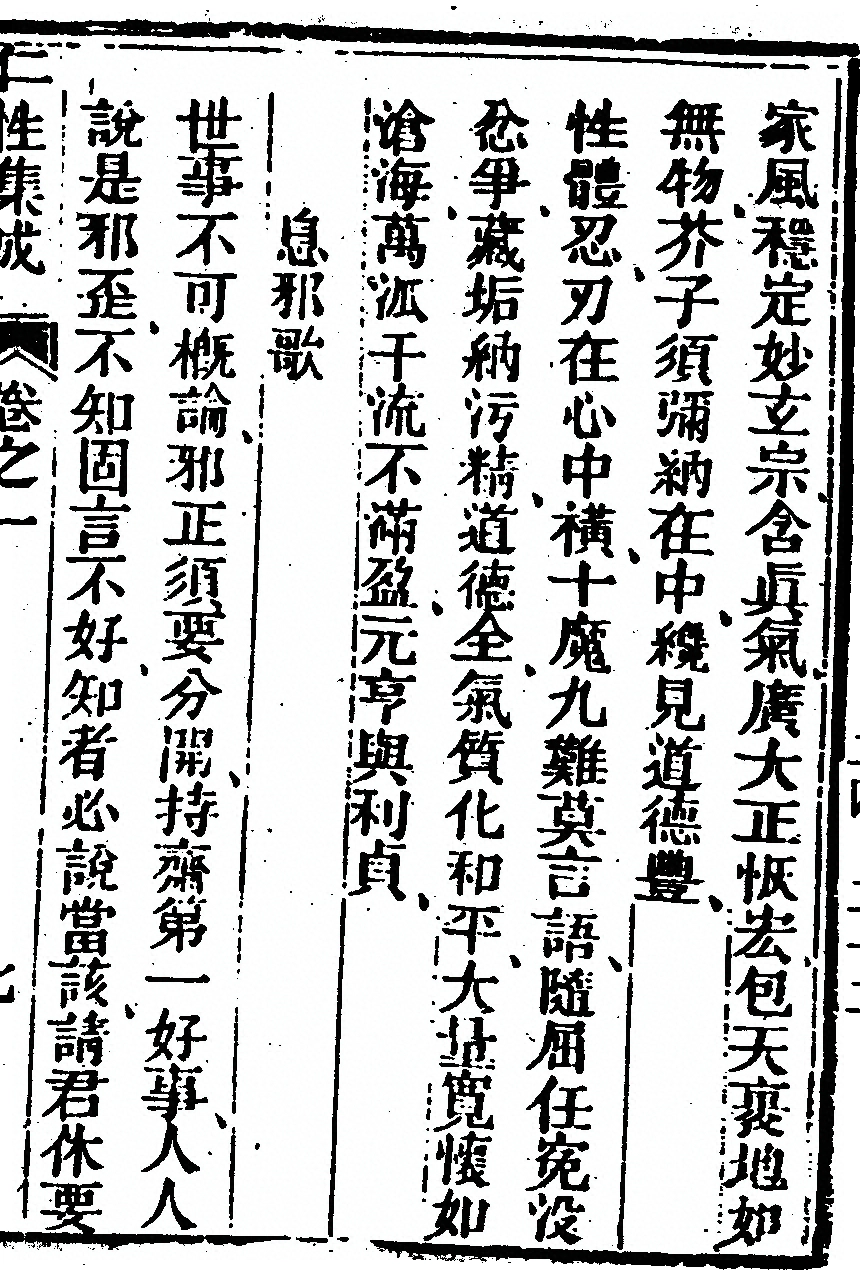 家風穩定妙玄宗含眞氣廣大正恢宏包天裹地如
無物芥子須彌納在中纔見道德豐
性體忍刃在心中橫十魔九難莫言語隨屈任寃沒
忿爭藏垢納污精道德全氣質化和平大量寬懷如
滄海萬派千流不滿盈元亨與利貞
息邪歌
世事不可概論邪正須要分開持齋第一好事人人
說是邪歪不知固言不好知者必說當該請君休要
性集成 卷之一